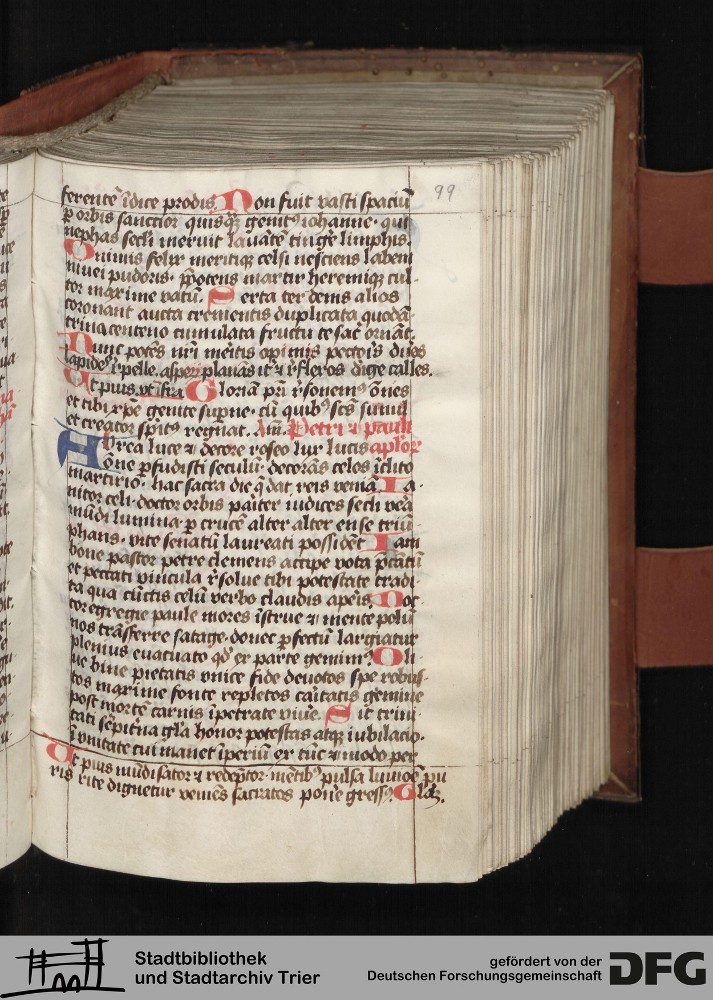 99
ferente͂ ı͂dice prodis. Non fuit vasti spaciu͂
ꝑ orbis sanctior quisqꝫ genitꝰ iohanne · qui
nephas secli meruit lauate͂ tinge͂ limphis.
O nimis felix meritiqꝫ celsi nesciens labem
niuei pudoris · p̄potens martir heremiqꝫ cul-
tor maxime vatu͂. Serta ter denis alios
coronant aucta crementis duplicata quoda͂
trina centeno cumulata fructu te sac͂ orna͂t.
Nunc pote͂s nr͂i me͂itis opimis pectoı͂s duos
lapides r͂pelle. asperu͂ planas it͂ ⁊ r͂flexos dige calles.
Ut pius. vt ı͂fra Gloriam pr͂i r͂sonem͂ o͂nes
et tibi xp͂e genite supne͂ · cu͂ quibꝰ sc͂s simul
et creator sp͂itꝰ regnat. Am͂. Petri ⁊ pauli
Aurea luce ⁊ decore roseo lux lucis aplor͂
o͂ne ꝑfudisti seculu͂ · decora͂s celos ı͂clito
martirio · hac sacra die q͂ dat reis venia͂. Ia-
nitor celi · doctor orbis paiter iudices secli ve͂a
mu͂di lumina · ꝑ cruce͂ alter alter ense triu͂-
phans · vite senatu͂ laureati posside͂t. Iam
bone pastor petre clemens accipe vota p͂ca͂tu͂
et peccati vincula r͂solue tibi potestate tradi-
ta qua cu͂ctis celu͂ verbo claudis ape͂is. Doc-
tor egregie paule mores ı͂strue ⁊ mente polu͂
nos tra͂sferre satage · donec ꝑfectu͂ largiatur
plenius euacuato qd͂ ex parte gerimꝰ. Oli-
ue bine pietatis vnice fide deuotos spe robus-
tos maxime fonte repletos ca͂itatis gemine
post morte͂ carnis ı͂petrate viue͂. Sit trini-
tati se͂pit͂na gl͂a honor potestas atqꝫ iubilacio ·
ı͂ vnitate cui manet ı͂periu͂ ex tu͂c ⁊ modo per
Ut pius mu͂di sator ⁊ rede͂ptor · me͂tibꝰ pulsa liuioe͂ pu
ris rite dignetur venie͂s sacratos pone͂ gressꝰ. Gl͂a.
Stadtbibliothek
und Stadtarchiv Trier
gefördert von der
Deutschen Forschungsgemeinschaft
DFG